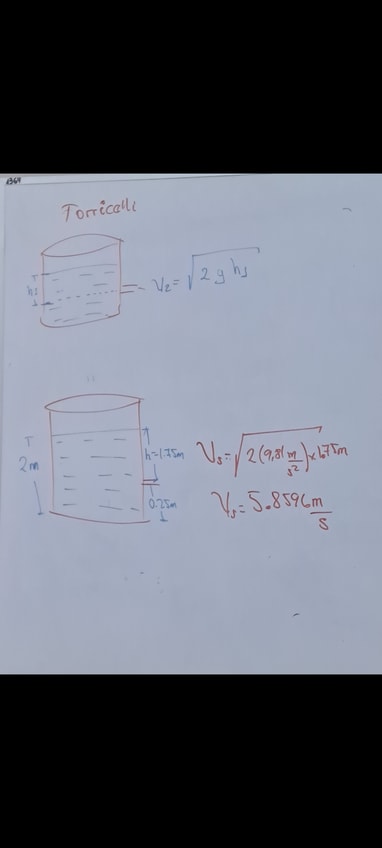 Torricelli
h₁
V₂ = √2 g h₁
2m
h=1.75m
0.25m
Vₛ = √2(9,81 m/s²) × 1.75m
Vₛ = 5.8596 m/s